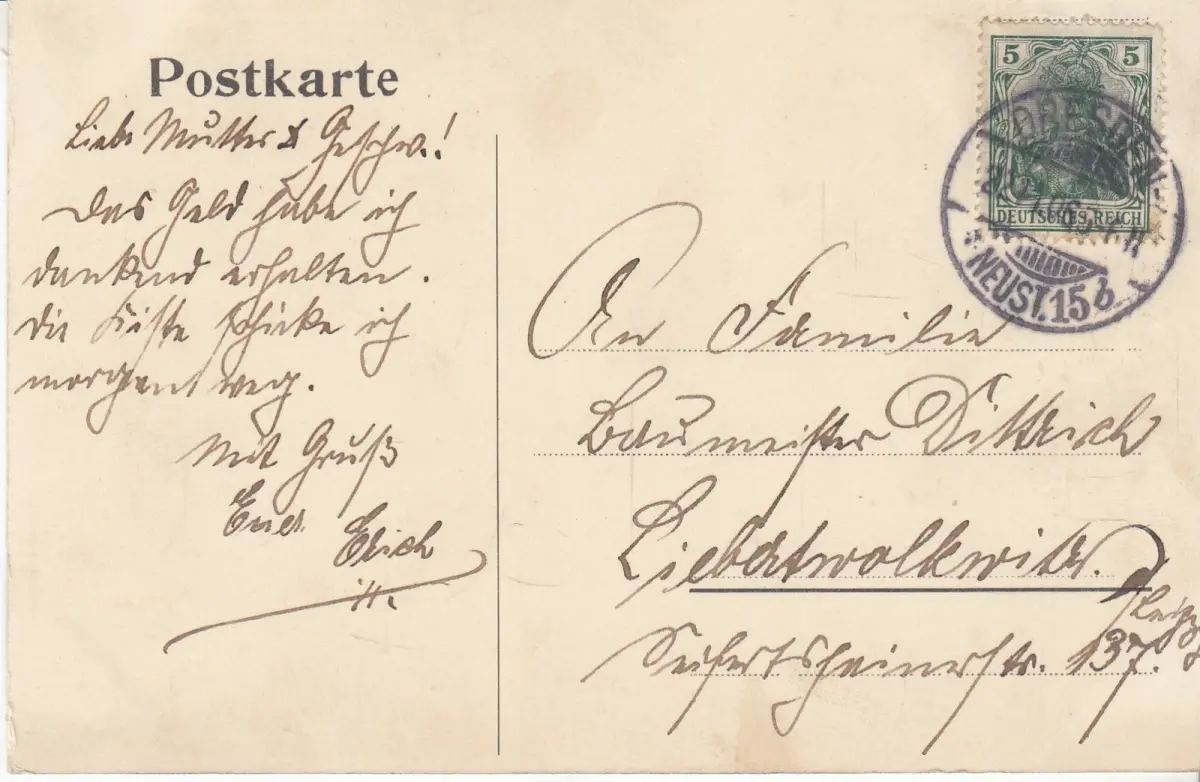 Postkarte
Liebe Mutter & Geschw.!
Das Geld habe ich
dankend erhalten.
Die Kiste schicke ich
morgen weg.
Mit Gruß
Euer
Erich
5 5
DEUTSCHES REICH
DRESDEN-
NEUST. 15 b
An Familie
Baumeister Dittrich
Liebertwolkwitz.
Seifertshainerstr. 137.